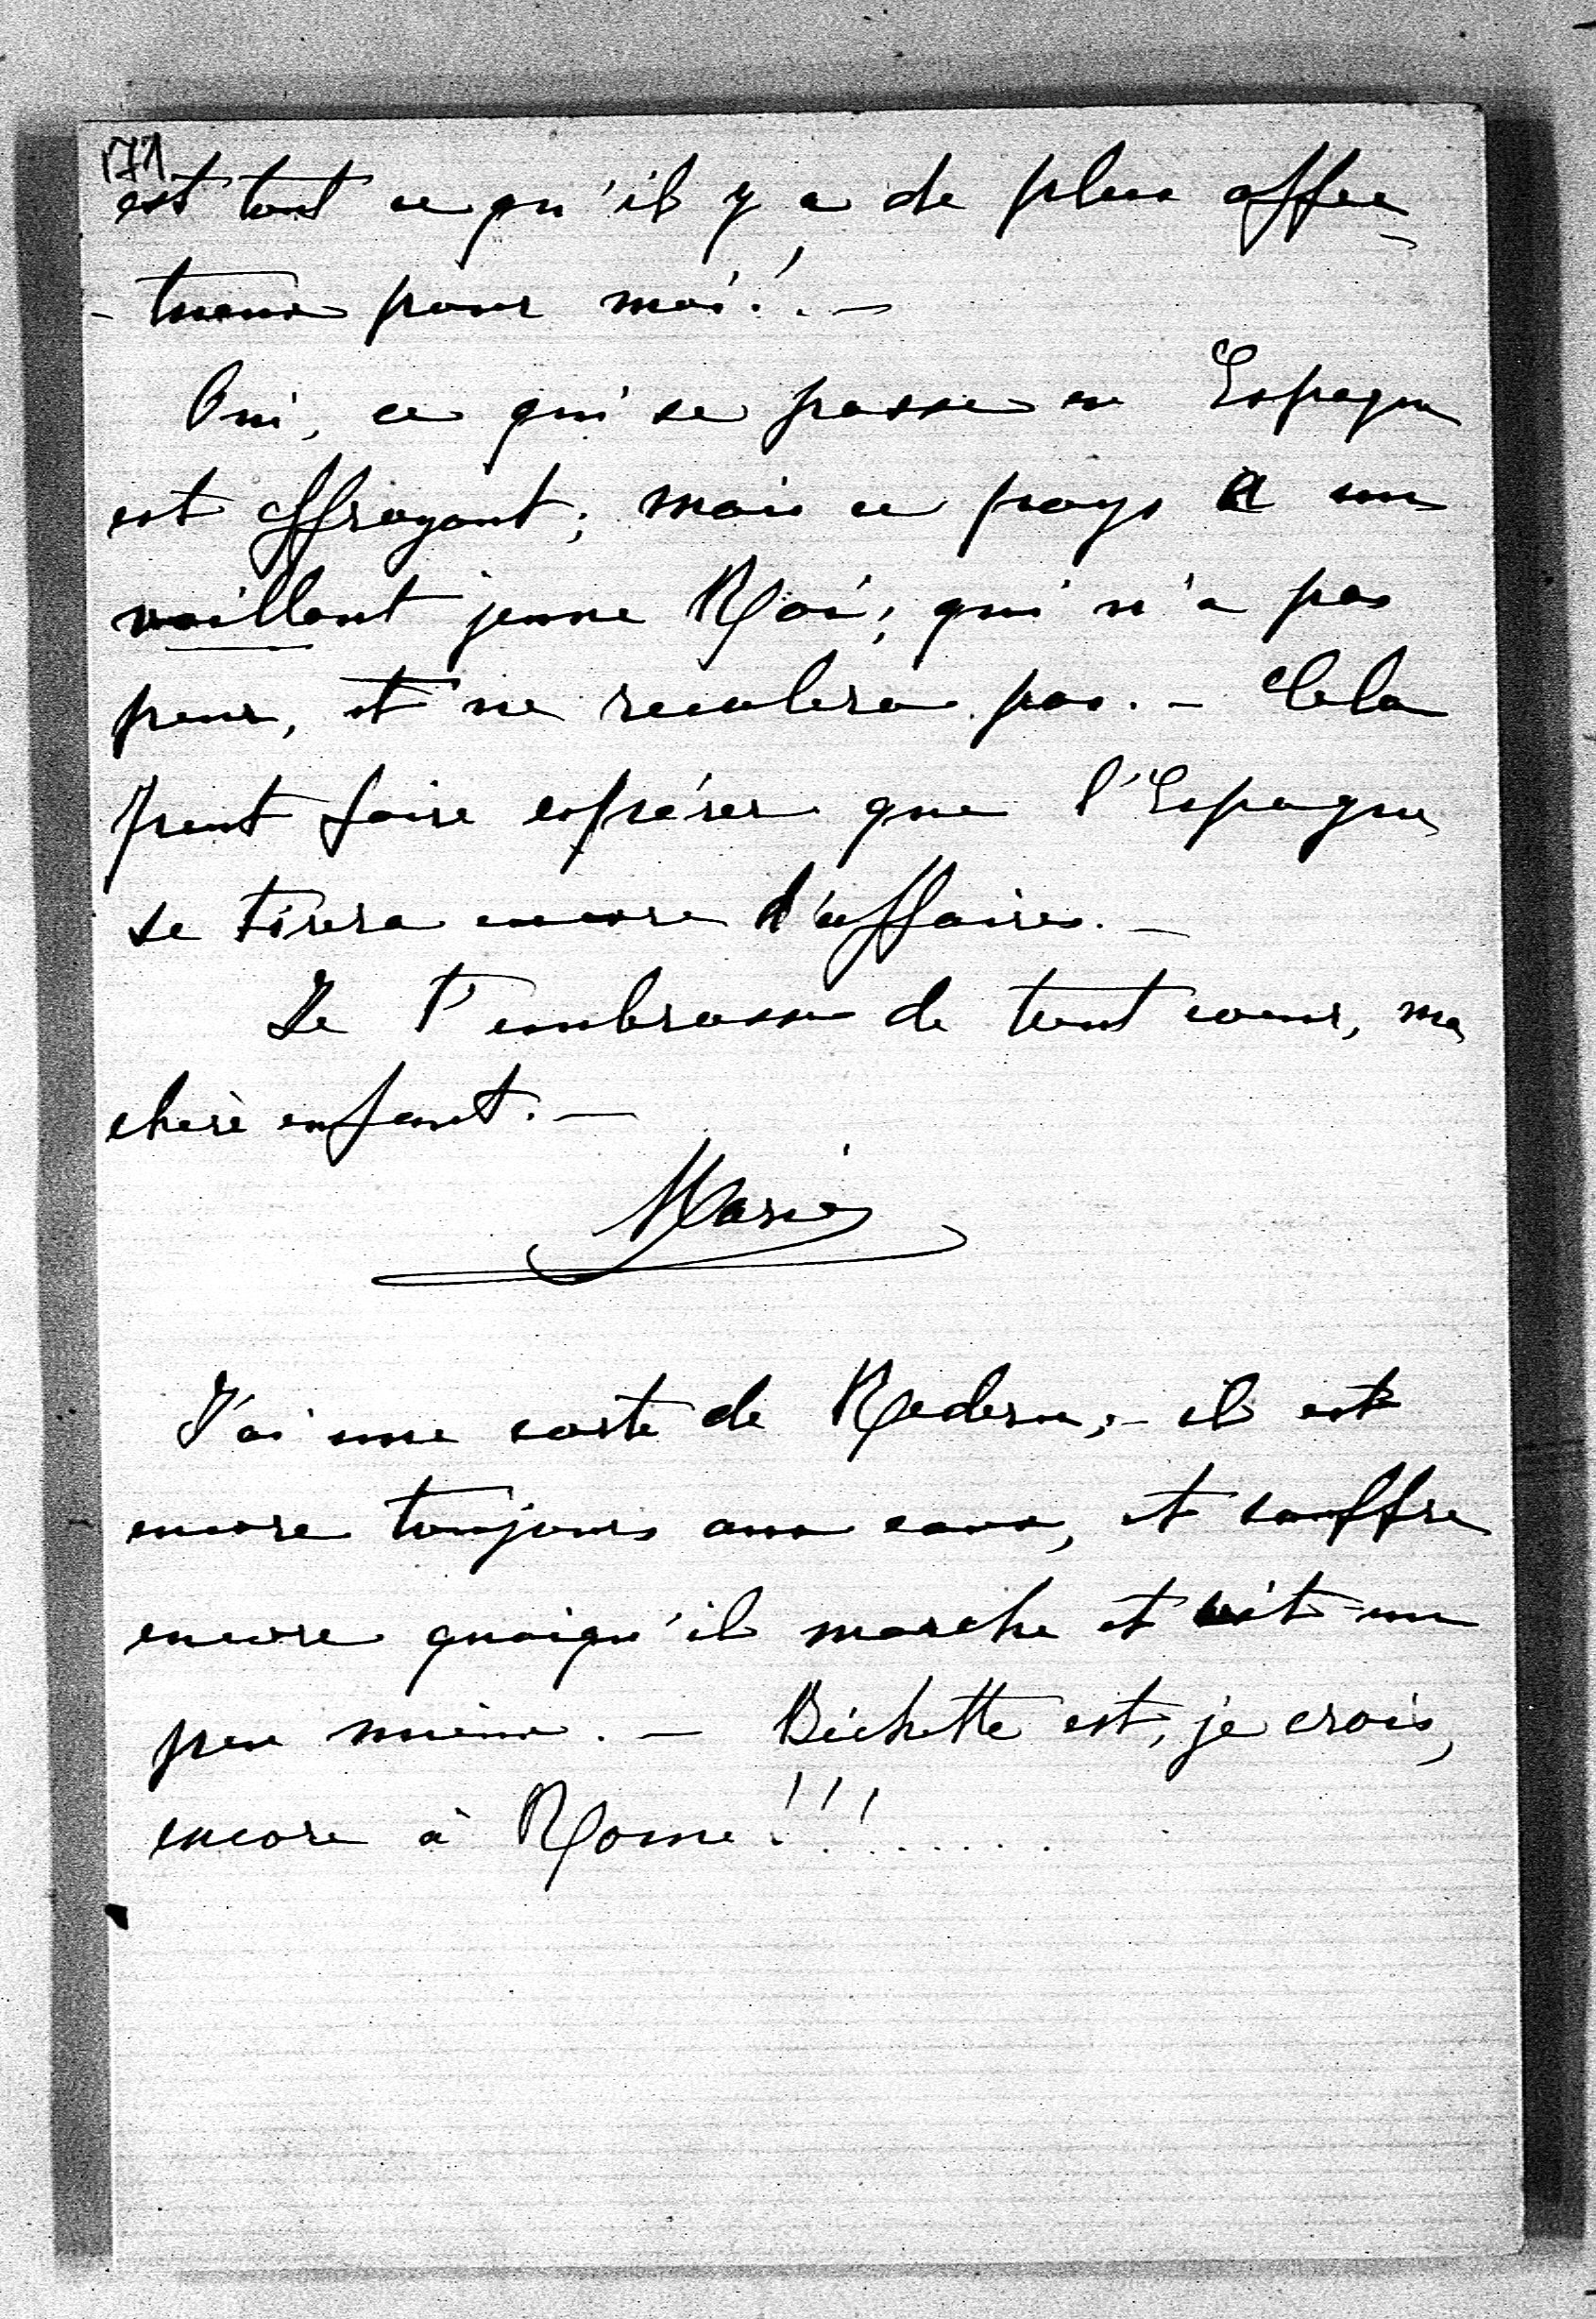 171
est tout ce qu'il y a de plus affec-
-tueux pour moi!. —
Oui, ce qui se passe en Espagne
est effrayant; mais ce pays a un
vaillant jeune Roi, qui n'a pas
peur, et ne reculera pas. — Cela
peut faire espérer que l'Espagne
se tirera encore d'affaires. —
Je t'embrasse de tout coeur, ma
chère enfant. —
Marie
J'ai une carte de Nadine; — il est
encore toujours aux eaux, et souffre
encore quoiqu'il marche et soit un
peu mieux. — Béchette est, je crois,
encore à Rome!!!......